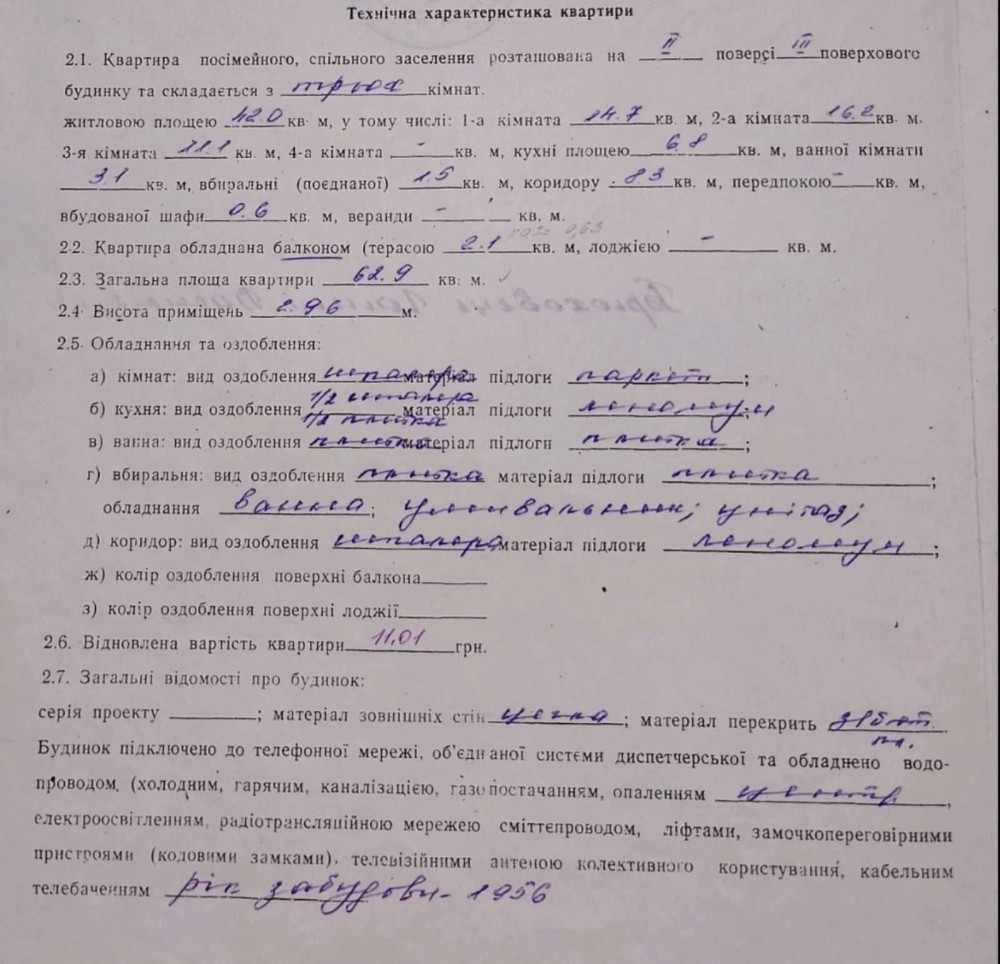 Технічна характеристика квартири
2.1. Квартира посімейного, спільного заселення розташована на II поверсі III поверхового
будинку та складається з трьох кімнат.
житловою площею 42.0 кв. м, у тому числі: 1-а кімната 14.7 кв. м, 2-а кімната 16.2 кв. м,
3-я кімната 11.1 кв. м, 4-а кімната - кв. м, кухні площею 6.8 кв. м, ванної кімнати
3.1 кв. м, вбиральні (поєднаної) 1.5 кв. м, коридору 8.3 кв. м, передпокою - кв. м,
вбудованої шафи 0.6 кв. м, веранди - кв. м.
0,63
2.2. Квартира обладнана балконом (терасою 2.1 кв. м, лоджією - кв. м.
2.3. Загальна площа квартири 62.9 кв. м.
2.4. Висота приміщень 2.96 м.
2.5. Обладнання та оздоблення:
а) кімнат: вид оздоблення шпалера матеріал підлоги паркет;
1/2 шпалера
б) кухня: вид оздоблення матеріал підлоги ленолеум
1/2 плитка
в) ванна: вид оздоблення плитка матеріал підлоги плитка;
г) вбиральня: вид оздоблення плитка матеріал підлоги плитка;
обладнання ванна; умивальник; унітаз;
д) коридор: вид оздоблення шпалера матеріал підлоги ленолеум;
ж) колір оздоблення поверхні балкона
з) колір оздоблення поверхні лоджії
2.6. Відновлена вартість квартири 11.01 грн.
2.7. Загальні відомості про будинок:
серія проекту ; матеріал зовнішніх стін цегла; матеріал перекрить з/бет.
пл.
Будинок підключено до телефонної мережі, об'єднаної системи диспетчерської та обладнено водо-
проводом, (холодним, гарячим, каналізацією, газопостачанням, опаленням центр.,
електроосвітленням, радіотрансляційною мережею сміттєпроводом, ліфтами, замочкопереговірними
пристроями (кодовими замками), телевізійними антеною колективного користування, кабельним
телебаченням рік забудови - 1956